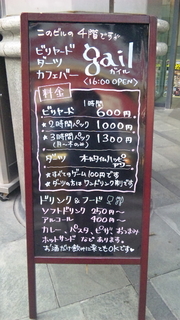 このビルの4階です
ビリヤード
ダーツ
カフェバー
gail
ガイル
<16:00 OPEN>
料金
1時間
ビリヤード 600円
★2時間パック 1000円
★3時間パック 1300円
(月〜木のみ)
ダーツ
★すべてのゲーム100円です
★ダーツの方はワンドリンク制です
ドリンク&フード
ソフトドリンク 250円〜
アルコール 400円〜
カレー、パスタ、ピザ、おつまみ
ホットサンドなどあります。
お酒だけ飲みに来てもOKです。